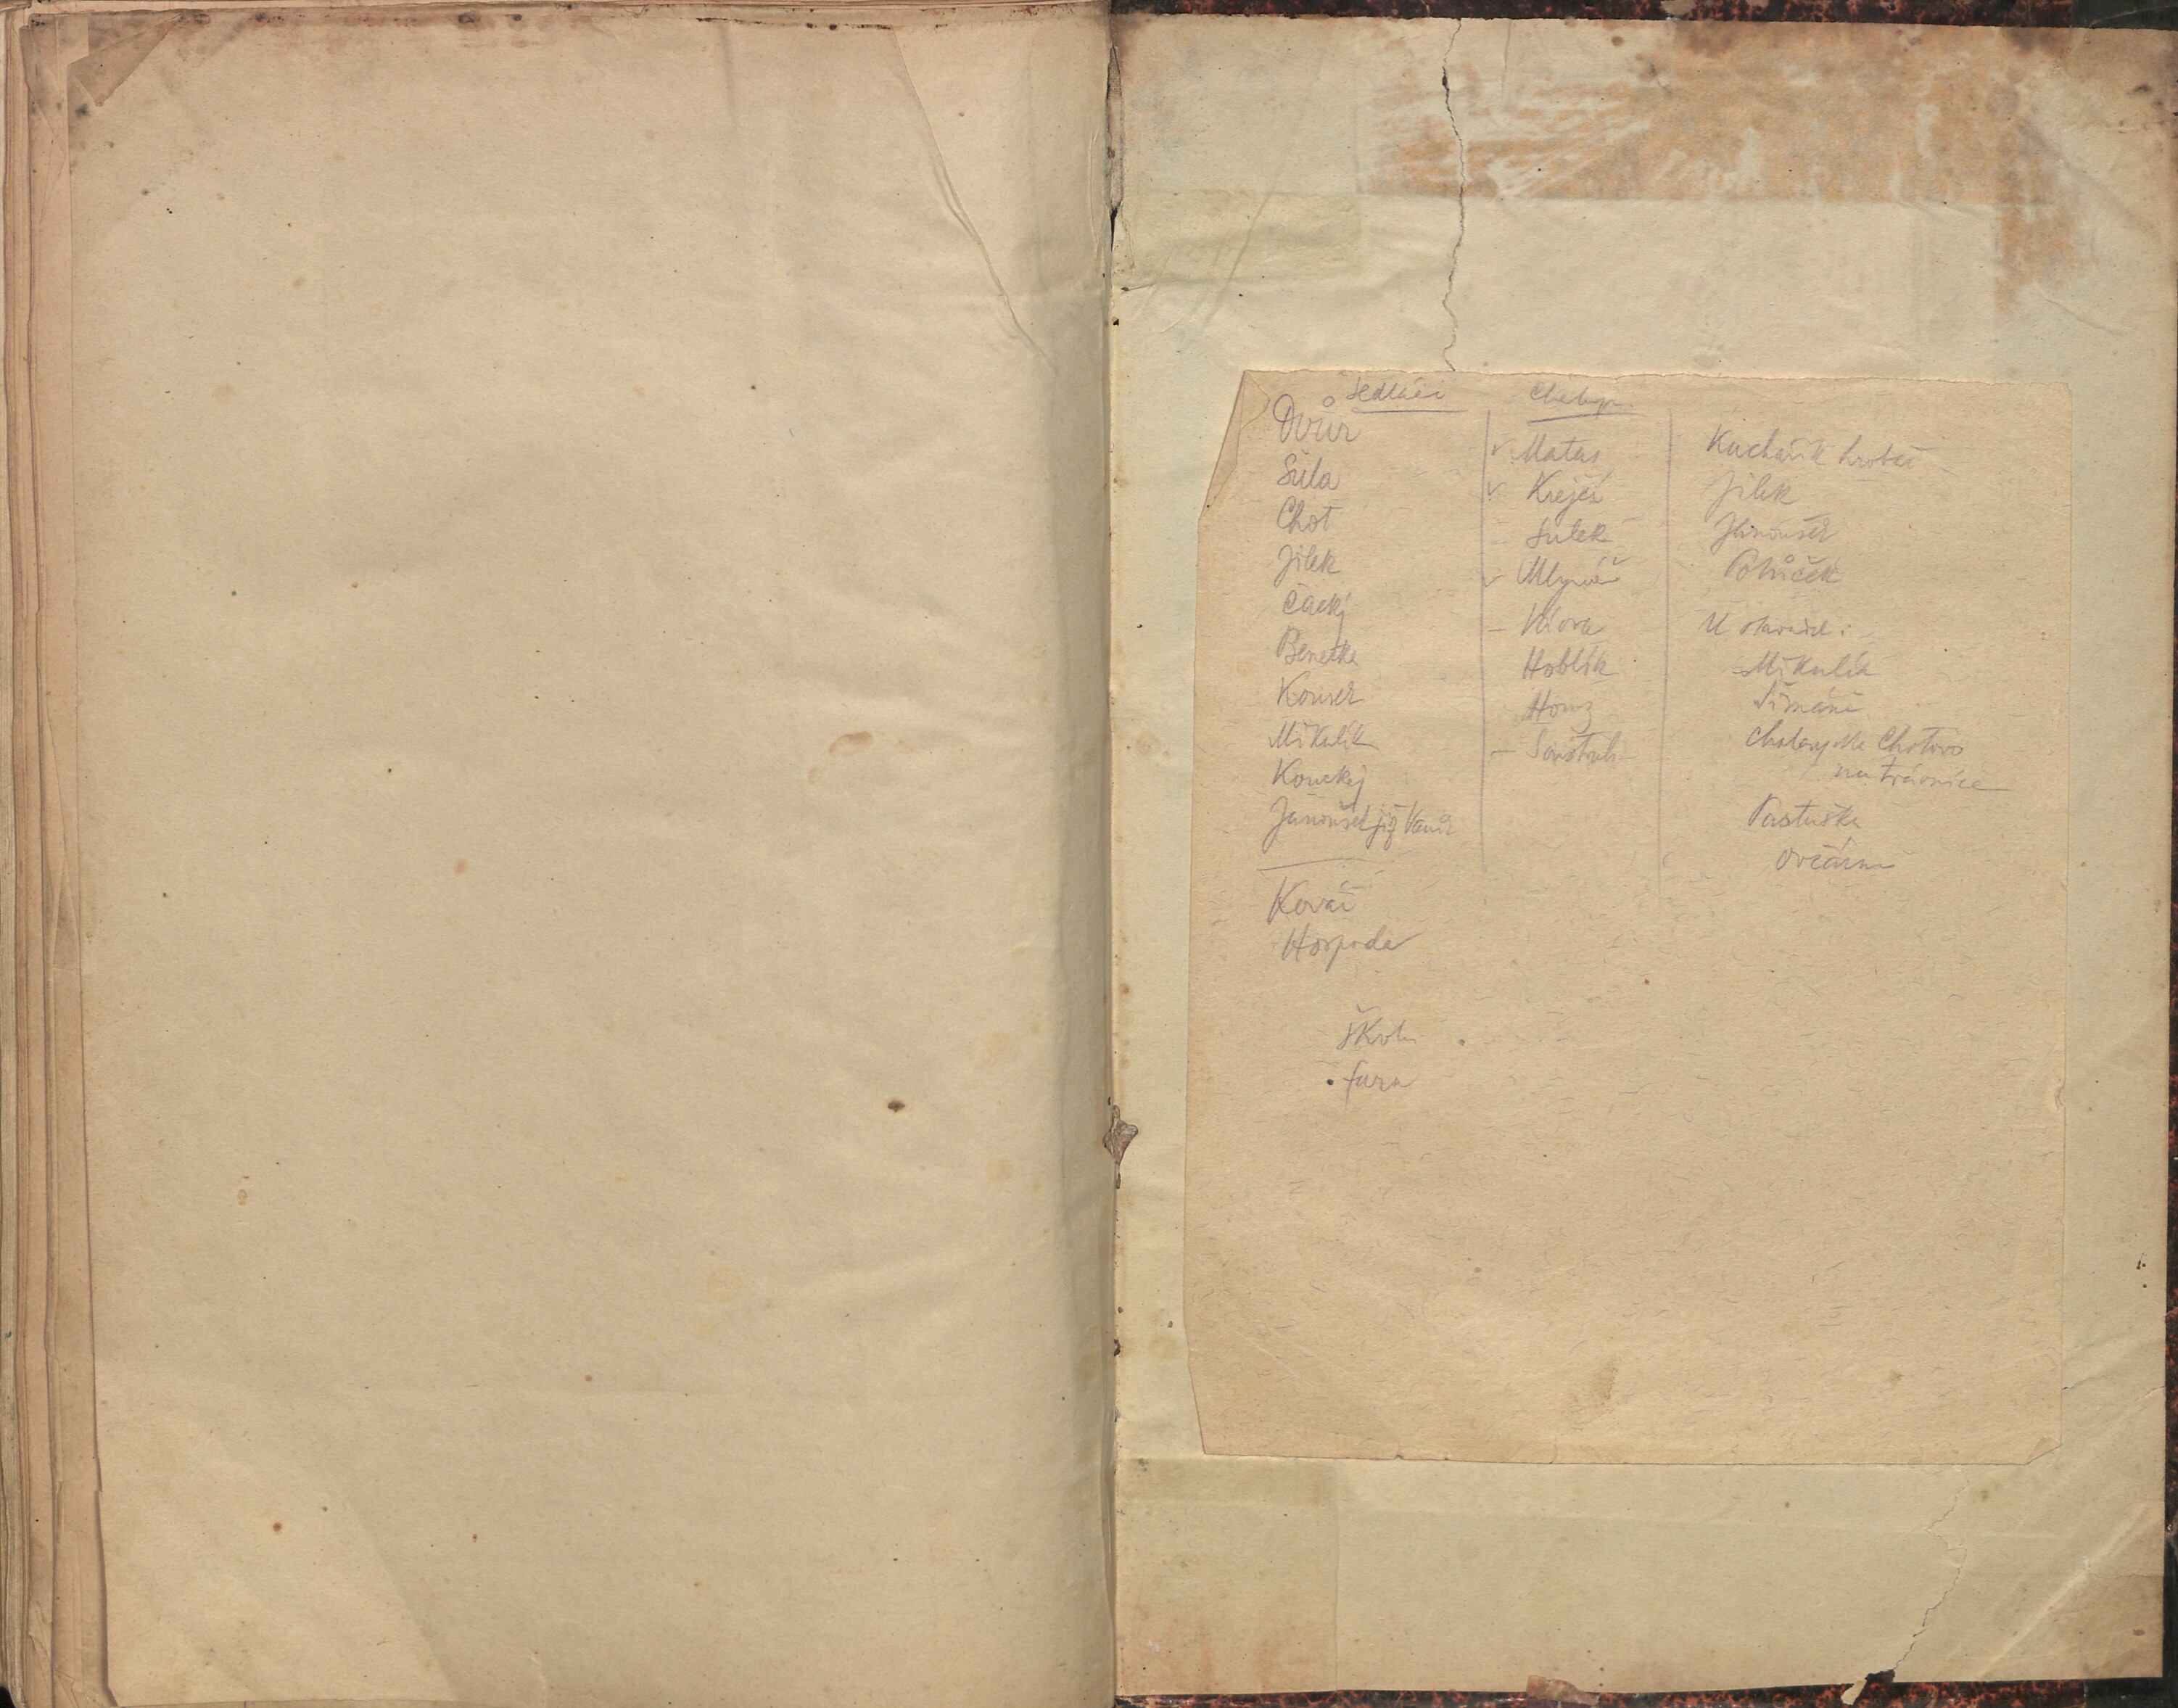 Sedláci
Dvůr
Síla
Chot
Jílek
Čácký
Benetka
Kouřek
Mikulík
Kouckej
Janoušek již Vaněk
Kovář
Hospoda
škola
fara
Chalup.
Matas
Krejčí
Sulek
Mlynář
Vávra
Hoblík
Houz
Soustruh
Kuchařík hrobař
Jílek
Janoušek
Potůček
U
Mikulík
Šimáně
Chalupska Chotovo
na trávnice
Pastuška
Ovčárna